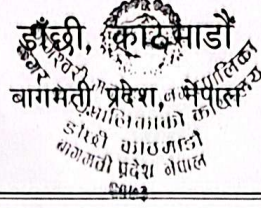 डाँछी, काठमाडौँ
बागमती प्रदेश, नेपाल
नगरपालिकाको कार्यालय
डाँछी काठमाडौं
बागमती प्रदेश नेपाल
२०७३